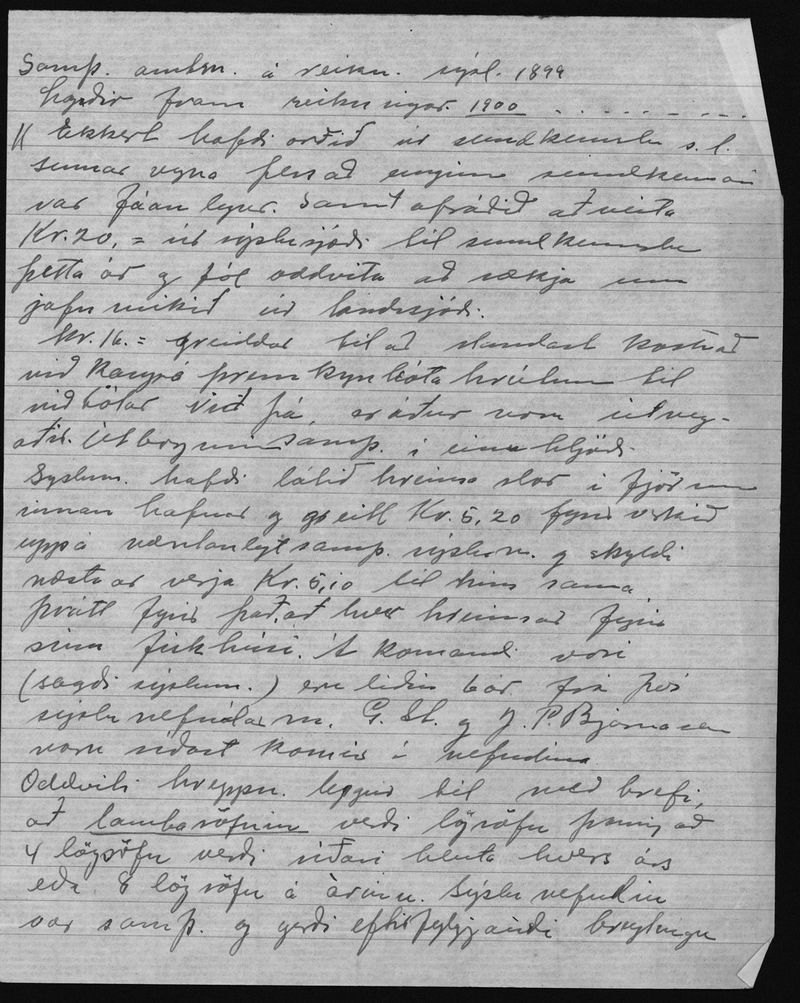 Samþ. amtsm. á reikn. sýsl. 1899
lagðir fram reikningar 1900
Ekkert hafði orðið úr sundkenslu s.l.
sumar vegna þess að enginn sundkennari
var fáanlegur. Samt afráðið að veita
Kr. 20,= úr sýslusjóði til sundkenslu
þetta ár og fól oddvita að sækja um
jafn mikið úr landssjóði.
Kr. 16.= greiddar til að standast kostnað
við kaup á þrem kynbóta hrútum til
viðbótar við þá, er áður voru útveg-
aðir. samþ. í einu hljóði.
Sýslum. hafði látið hreinsa slor í fjörunni
innan hafnar og greitt Kr. 5,20 fyrir verkið
uppá væntanlegt samþ. sýslun. og skyldi
næsta ár verja Kr. 5,10 til hins sama
þrátt fyrir það, að hver hreinsar fyrir
sínu fiskhúsi. Á komandi vori
(sagði sýslum.) eru liðin 6 ár frá því
sýslunefndarm. G. St. og J. P. Bjarnasen
voru síðast kosnir í nefndina
Oddviti hreppsn. leggur til með bréfi,
að lambasöfnin verði lögsöfn þannig að
4 lögsöfn verði síðari hluta hvers árs
eða 8 lögsöfn á árinu. Sýslunefndin
var samþ. og gerði eftirfylgjandi breytingu